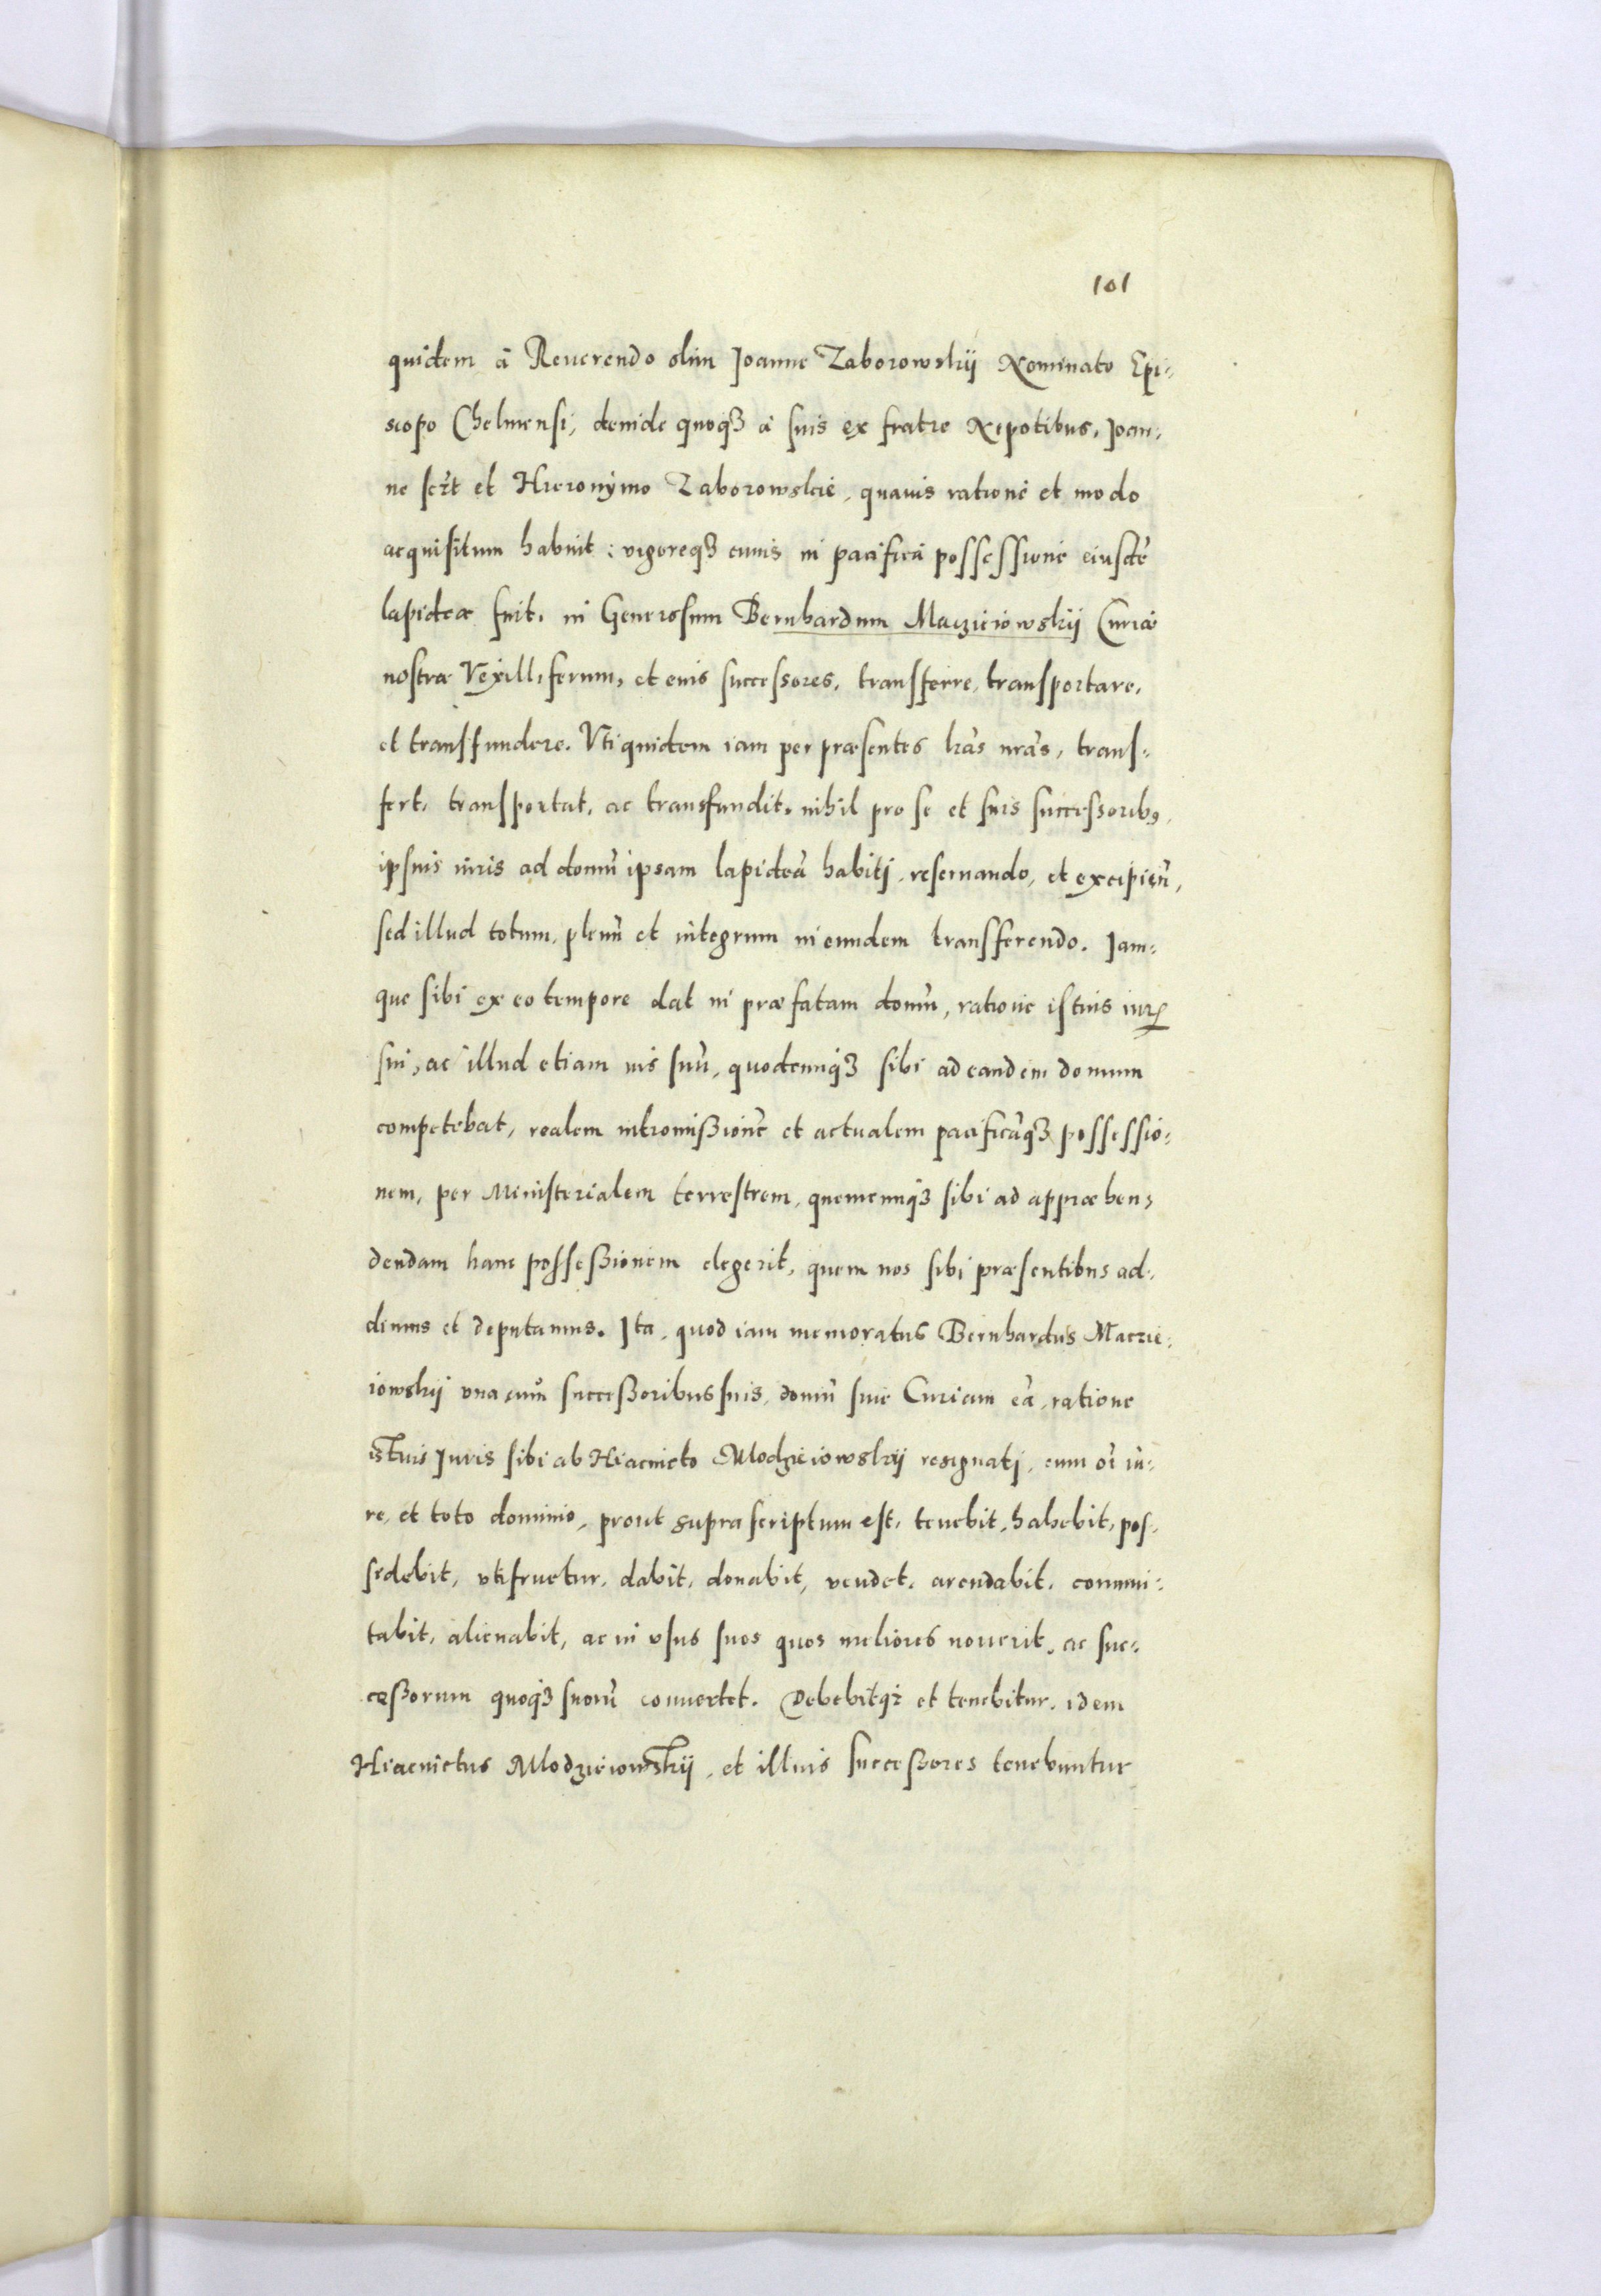 101
quidem à Reuerendo olim Joanne Zaborowskij Nominato Epi-
scopo Chelmensi, deinde quoqꝫ à suis ex fratre Nepotibus, Joan-
ne sclt et Hieronymo Zaborowskie, quauis ratione et modo
acquisitum habuit: vigoreqꝫ cuius in pacifica possessione eiusdē
lapideæ fuit, in Generosum Bernhardum Macziciowskij Curiæ
nostræ Vexilliferum, et eius successores, transferre, transportare,
et transfundere. Vti quidem iam per præsentes lrās nrās, trans-
fert, transportat, ac transfundit, nihil pro se et suis successoribꝰ,
ipsius iuris ad domū ipsam lapideā habitj, reseruando, et excipien̄,
sed illud totum, plenū et integrum in eundem transferendo. Jam-
que sibi ex eo tempore dat in præfatam domū, ratione istius iurꝭ
sui, ac illud etiam ius suū, quodcunqꝫ sibi ad eandem domum
competebat, realem intromißionē et actualem pacificāqꝫ possessio-
nem, per Ministerialem terrestrem, quemcunqꝫ sibi ad appræhen-
dendam hanc posseßionem elegerit, quem nos sibi præsentibus ad-
dimus et deputamus. Ita, quod iam memoratus Bernhardus Maczie-
iowskij vna cum succeßoribus suis, domū siue Curiam eā, ratione
istius Juris sibi ab Hiacincto Mlodzieiowskij resignatj, cum oī iu-
re, et toto dominio, prout supra scriptum est, tenebit, habebit, pos-
sidebit, vtifruetur, dabit, donabit, vendet, arendabit, commu-
tabit, alienabit, ac in vsus suos quos meliores nouerit, ac suc-
ceßorum quoqꝫ suorū conuertet. Debebitqꝫ et tenebitur, idem
Hiacinctus Mlodzieiowskij, et illius succeßores tenebuntur